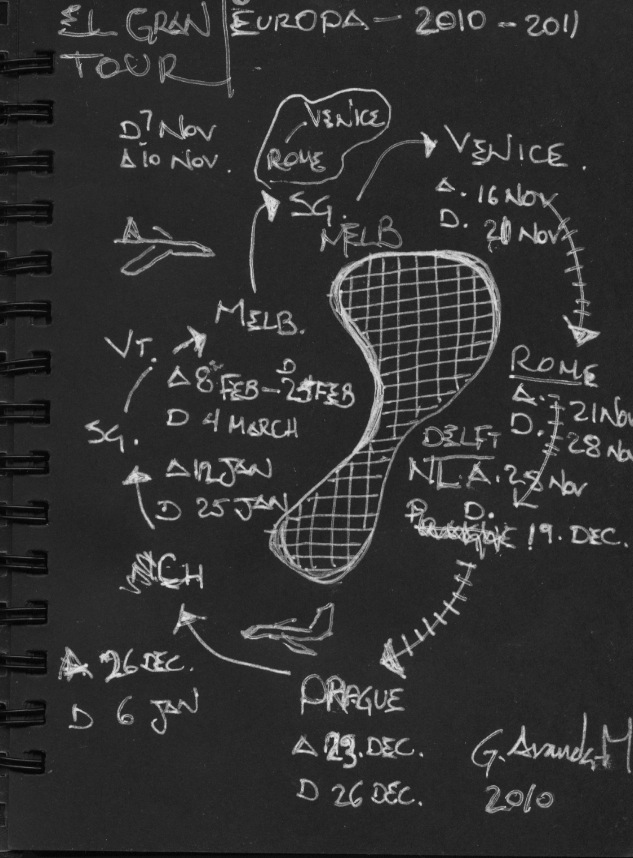 EL GRAN TOUR
EUROPA - 2010 - 2011
D 7 NOV
A 10 NOV.
VENICE
ROME
SG.
MELB
VENICE.
A. 16 NOV
D. 21 NOV
MELB.
VT.
A 8 FEB - D 25 FEB
D 4 MARCH
SG.
A 12 JAN
D 25 JAN
ROME
A. - 21 NOV
D. - 28 NOV
DELFT
NL. A. 28 NOV
D.
19. DEC.
NCH
A 26 DEC.
D 6 JAN
PRAGUE
A 23. DEC.
D 26 DEC.
2010